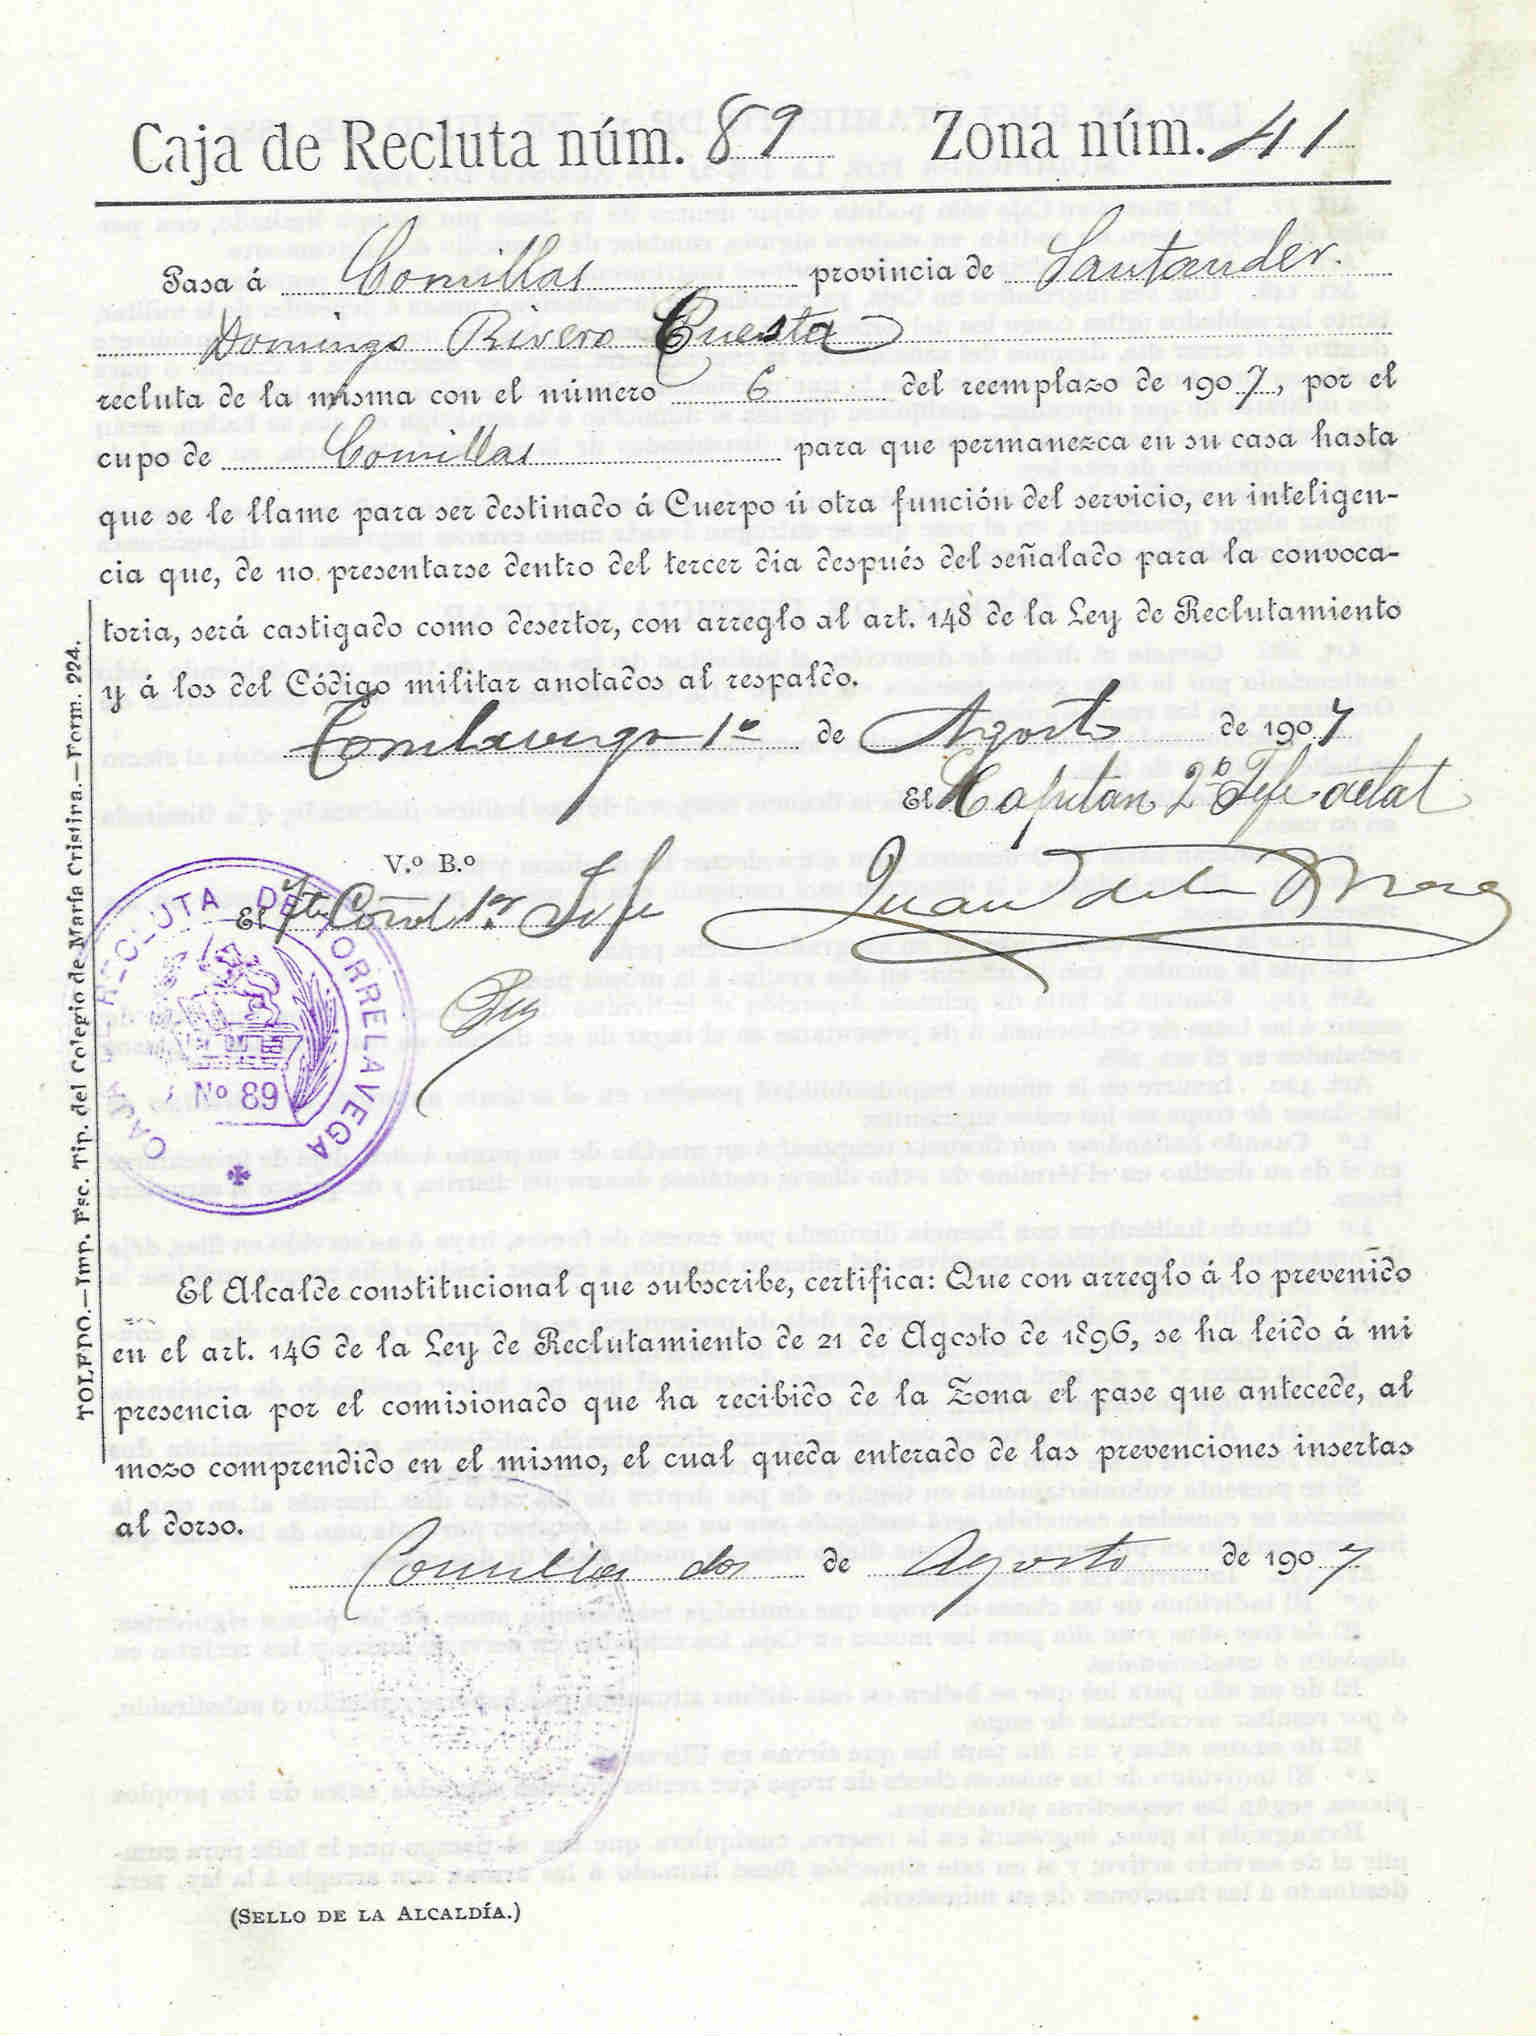 Caja de Recluta núm. 89 Zona núm. 41
Pasa á Comillas provincia de Santander.
Domingo Rivero Cuesta
recluta de la misma con el número 6 del reemplazo de 1907, por el
cupo de Comillas para que permanezca en su casa hasta
que se le llame para ser destinado á Cuerpo ú otra función del servicio, en inteligen-
cia que, de no presentarse dentro del tercer día después del señalado para la convoca-
toria, será castigado como desertor, con arreglo al art. 148 de la Ley de Reclutamiento
y á los del Código militar anotados al respaldo.
Torrelavega 1º de Agosto de 1907
El Capitan 2º Jefe actal
Juan de la
V.º B.º
El Tte Coronl 1er Jefe
CAJA DE RECLUTA DE TORRELAVEGA
Nº 89
TOLEDO.—Imp. Esc. Tip. del Colegio de María Cristina.—Form. 224.
El Alcalde constitucional que subscribe, certifica: Que con arreglo á lo prevenido
en el art. 146 de la Ley de Reclutamiento de 21 de Agosto de 1896, se ha leído á mi
presencia por el comisionado que ha recibido de la Zona el pase que antecede, al
mozo comprendido en el mismo, el cual queda enterado de las prevenciones insertas
al dorso.
Comillas dos de Agosto de 1907
(SELLO DE LA ALCALDÍA.)